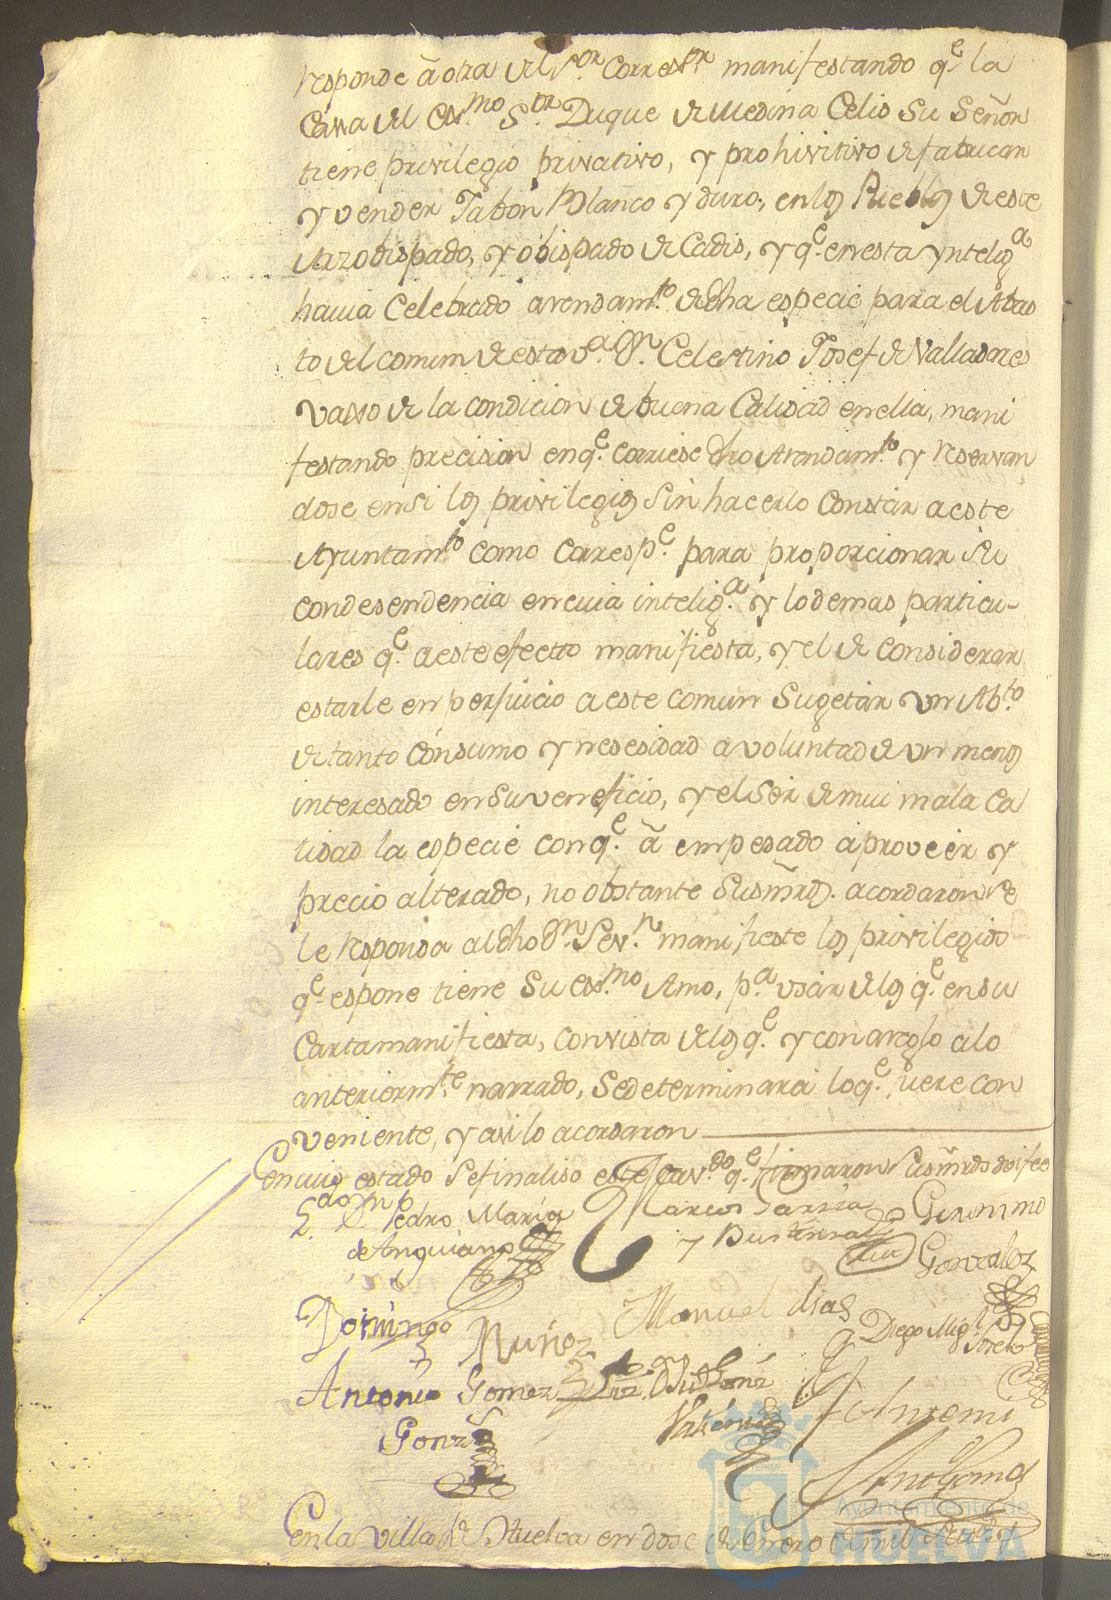 responde à otra del Sor. Correxr. manifestando qe. la
Cassa del Exmo. Sor. Duque de Medina Celis su Señor
tiene privilegio privativo, y prohivitivo de fabricar
y vender Jabon Blanco y duro, en los Pueblos de este
Arzobispado, y obispado de Cadis, y qe. en esta ynteliga.
havia Celebrado arrendamto. de dha especie para el Abas
to del comun de esta va. Dn. Celestino Josef de Valladares
vasso de la condicion de buena Calidad en ella, mani
festando precision en qe. corriese dho Arrendamto. y reservan
dose en si los privilegios sin hacerlo constar a este
Ayuntamto. como correspe. para proporcionar su
condesendencia en cuia inteliga. y lo demas particu-
lares qe. a este efecto manifiesta, y el de considerar
estarle en perjuicio a este comun sugetar un Abto.
de tanto consumo y nesesidad a voluntad de un menos
interesado en su veneficio, y el ser de mui mala ca
lidad la especie con qe. à empesado à proveer y
precio alterado, no obstante susmrds. acordaron se
le responda al dho Dn. Sevn. manifieste los privilegios
qe. espone tiene su exmo. Amo, pa. usar de los qe. en su
Carta manifiesta, con vista de los qe. y con areglo a lo
anteriormte. narrado, se determinará lo qe. uere con
veniente, y assi lo acordaron
En cuio estado se finaliso este Cavdo. qe. firmaron susmrds doi fee
Ldo. Dn. Pedro María Marcos Garzia Geronimo
de Anguiano y Bustamante Gonzalez
Domingo Nuñez Manuel dias Diego Migl.
Antonio Gomez
Gonz Antemi
En la villa de Huelva en dose de Enero de mil
Ayuntamiento de
HUELVA